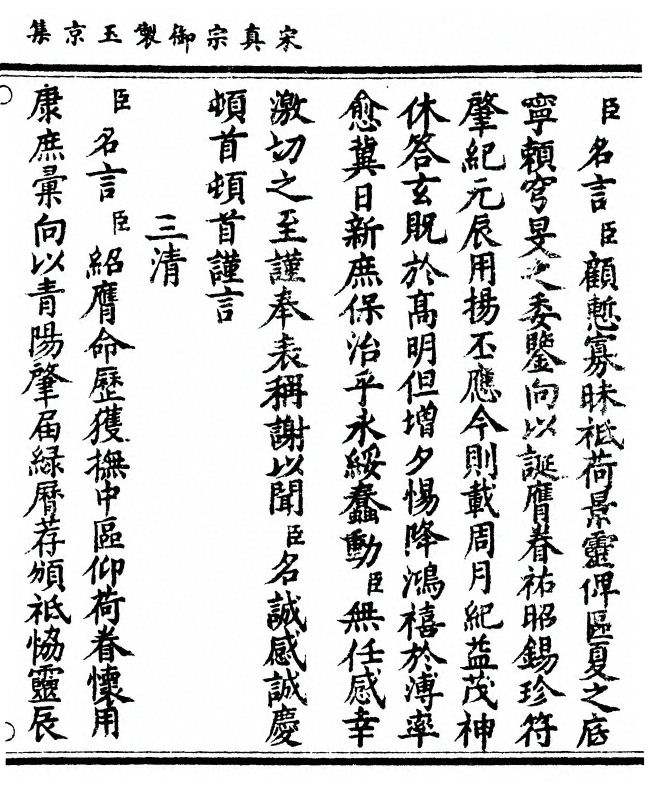 宋真宗御製玉京集
臣名言臣顧慙寡昧祗荷景靈俾區夏之底
寧賴穹旻之委鑒向以誕膺眷祐昭錫珍符
肇紀元辰用揚丕應今則載周月紀益茂神
休答玄貺於高明但增夕惕降鴻禧於溥率
愈冀日新庶保治乎永綏蠢動臣無任感幸
激切之至謹奉表稱謝以聞臣名誠感誠慶
頓首頓首謹言
三清
臣名言臣紹膺命歷獲撫中區仰荷眷懷用
康庶彙向以青陽肇届緑曆荐頒祗恊靈辰